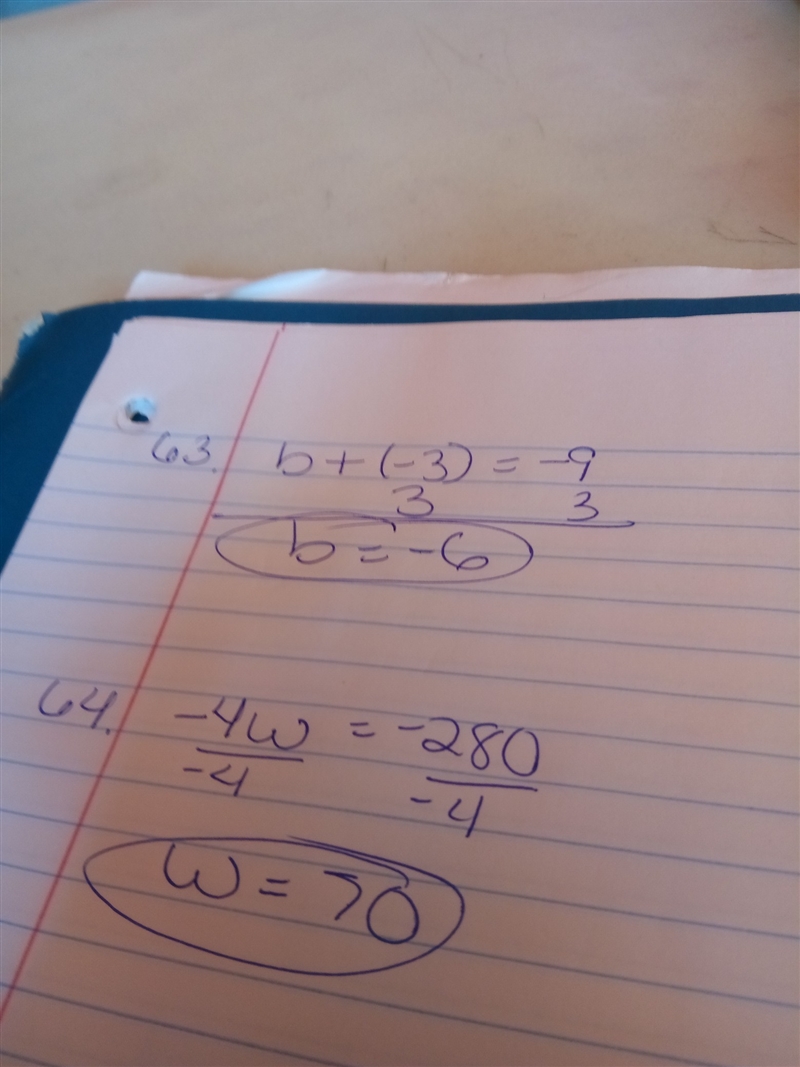 63. b + (-3) = -9
3 3
b = -6
64. -4w = -280
-4 -4
w = 70